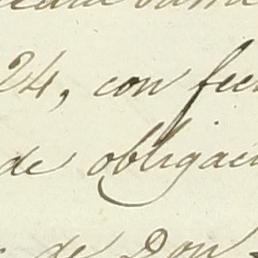 24, con fec
de obligaci
de Don